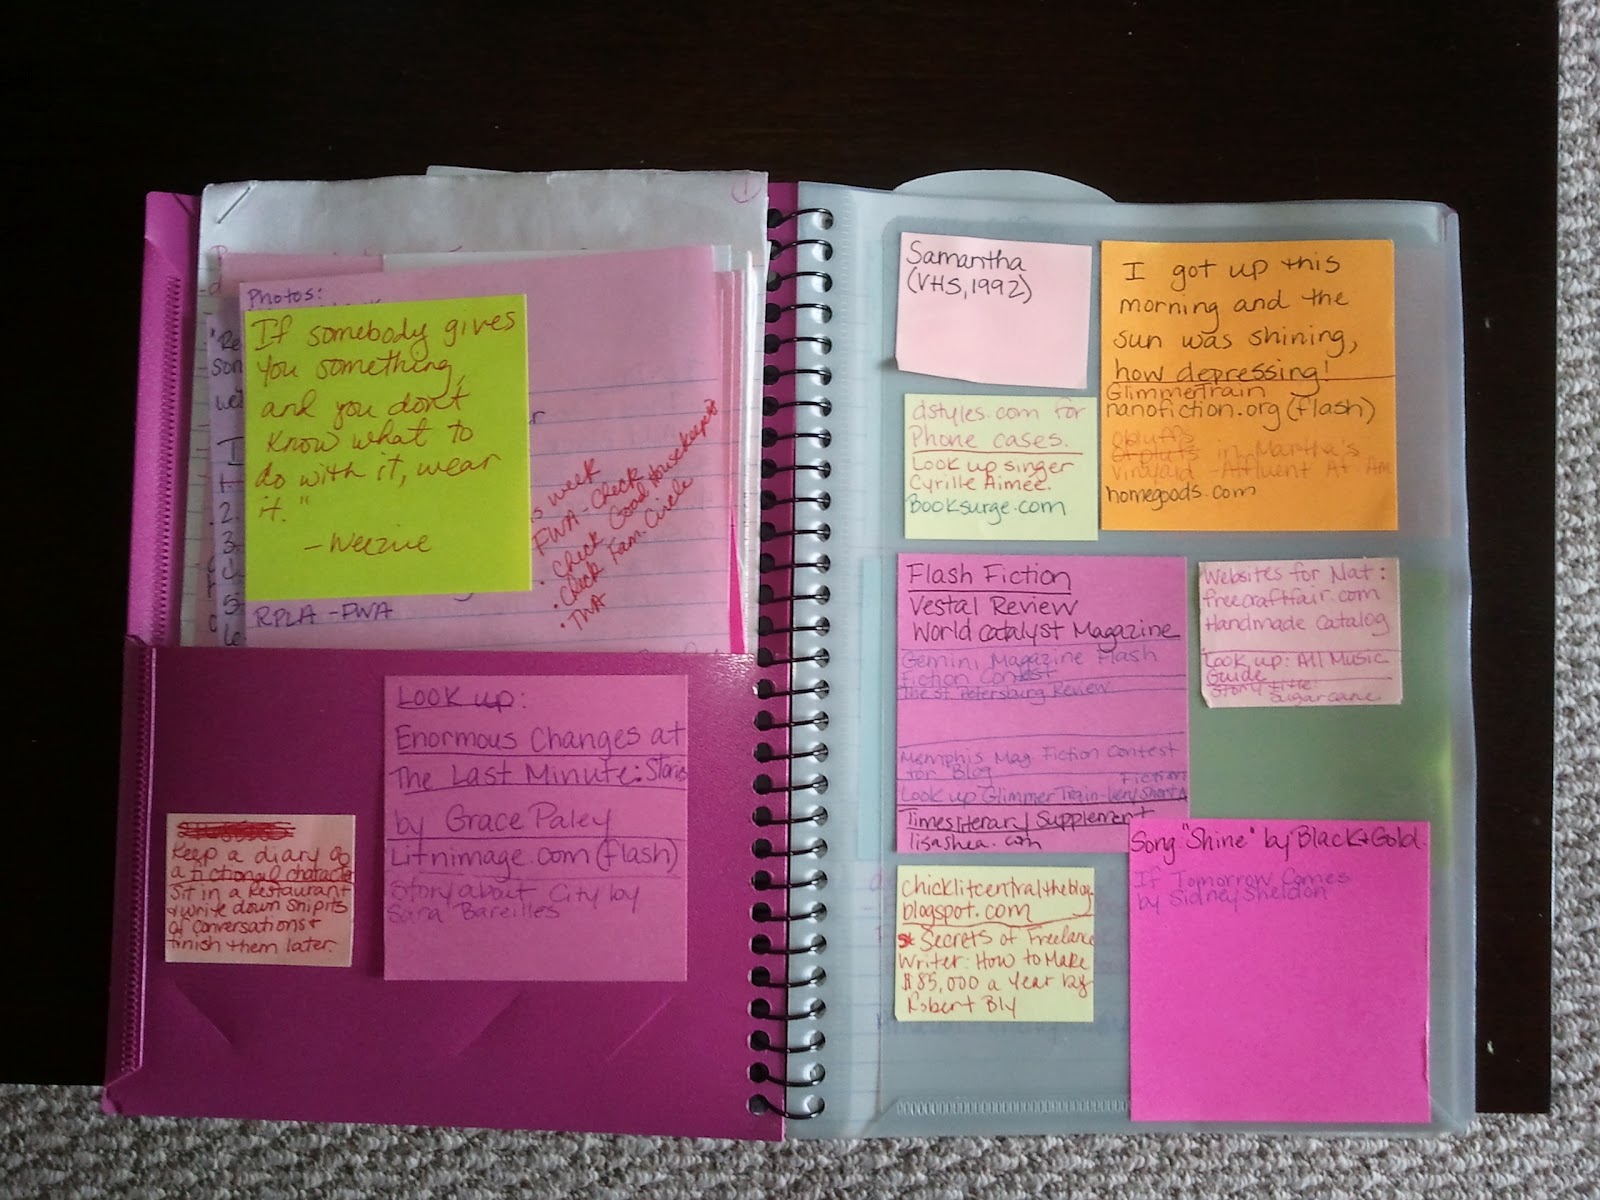 Photos:
If somebody gives
you something,
and you don't
know what to
do with it, wear
it."
2.
3.
5.
6
RPLA - FWA
week
FWA - Check
• Check Good Housekeeping
• Check Fam. Circle
• TWA
Look up:
Enormous Changes at
The Last Minute: Stories
by Grace Paley
Litnimage.com (flash)
Story about City by
Sara Bareilles
Keep a diary of
a fictional character
Sit in a Restaurant
+ write down snipits
of conversations +
finish them later.
Samantha
(VHS, 1992)
I got up this
morning and the
sun was shining,
how depressing!
GlimmerTrain
nanofiction.org (flash)
in Martha's
Vineyard - Affluent
homegoods.com
dstyles.com for
Phone cases.
Look up singer
Cyrille Aimee.
Booksurge.com
Flash Fiction
Vestal Review
World Catalyst Magazine
Gemini Magazine Flash
Fiction Contest
The St. Petersburg Review
Memphis Mag Fiction Contest
for Blog
Fiction
Look up Glimmer Train - Very Short
Times Literary Supplement
lisashea.com
Websites for Nat:
freecraftfair.com
Handmade Catalog
Look up: All Music
Guide
Story title:
Sugarcane
chicklitcentraltheblog
blogspot.com
Secrets of Freelance
Writer: How to Make
$85,000 a Year by
Robert Bly
Song "Shine" by Black + Gold.
If Tomorrow Comes
by Sidney Sheldon